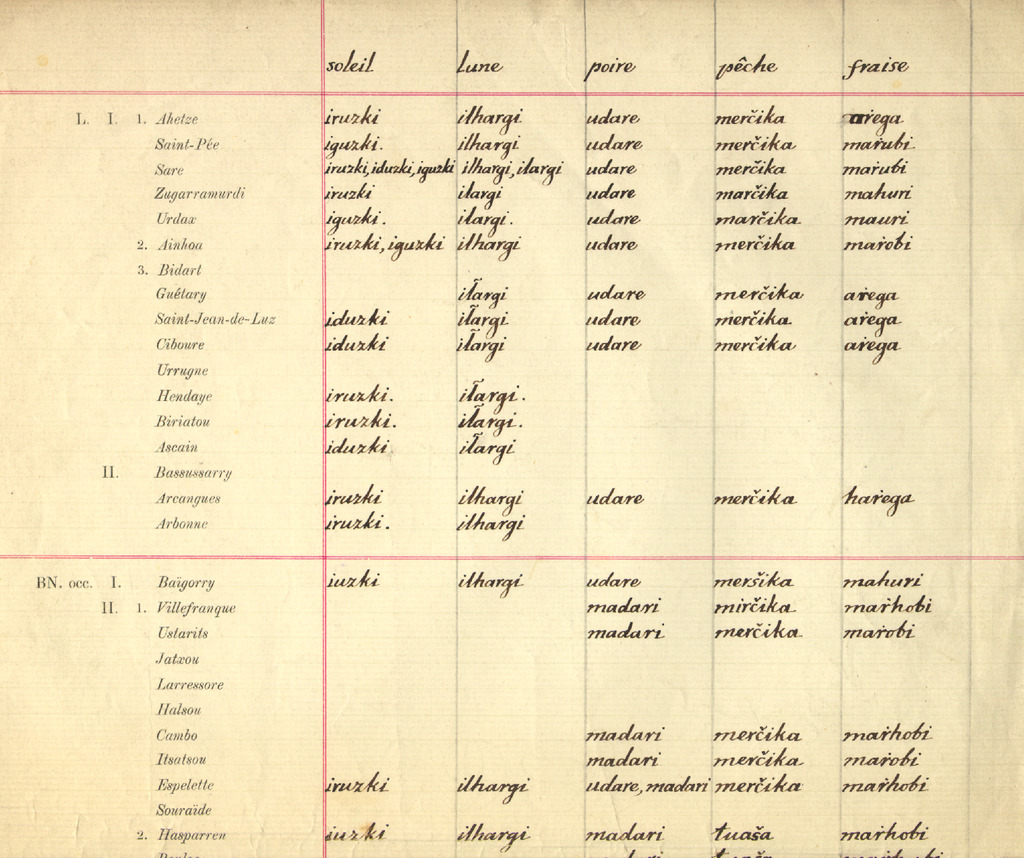 soleil lune poire pêche fraise
L. I. 1. Ahetze iruzki ilhargi udare merčika arega
Saint-Pée iguzki. ilhargi udare merčika maṙubi
Sare iruzki, iduzki, iguzki ilhargi, ilargi udare merčika maṙubi
Zugarramurdi iruzki ilargi udare marčika mahuri
Urdax iguzki. ilargi. udare marčika mauri
2. Ainhoa iruzki, iguzki ilhargi udare merčika maṙobi
3. Bidart
Guétary il̃argi udare merčika aṙega
Saint-Jean-de-Luz iduzki il̃argi udare merčika aṙega
Ciboure iduzki il̃argi udare merčika aṙega
Urrugne
Hendaye iruzki. il̃argi.
Biriatou iruzki. il̃argi.
Ascain iduzki il̃argi
II. Bassussarry
Arcangues iruzki ilhargi udare merčika haṙega
Arbonne iruzki. ilhargi
BN. occ. I. Baïgorry iuzki ilhargi udare meršika mahuri
II. 1. Villefranque madari mirčika maṙhobi
Ustarits madari merčika maṙobi
Jatxou
Larressore
Halsou
Cambo madari merčika maṙhobi
Itsatsou madari merčika maṙobi
Espelette iruzki ilhargi udare, madari merčika maṙhobi
Souraïde
2. Hasparren iuzki ilhargi madari tuaša maṙhobi